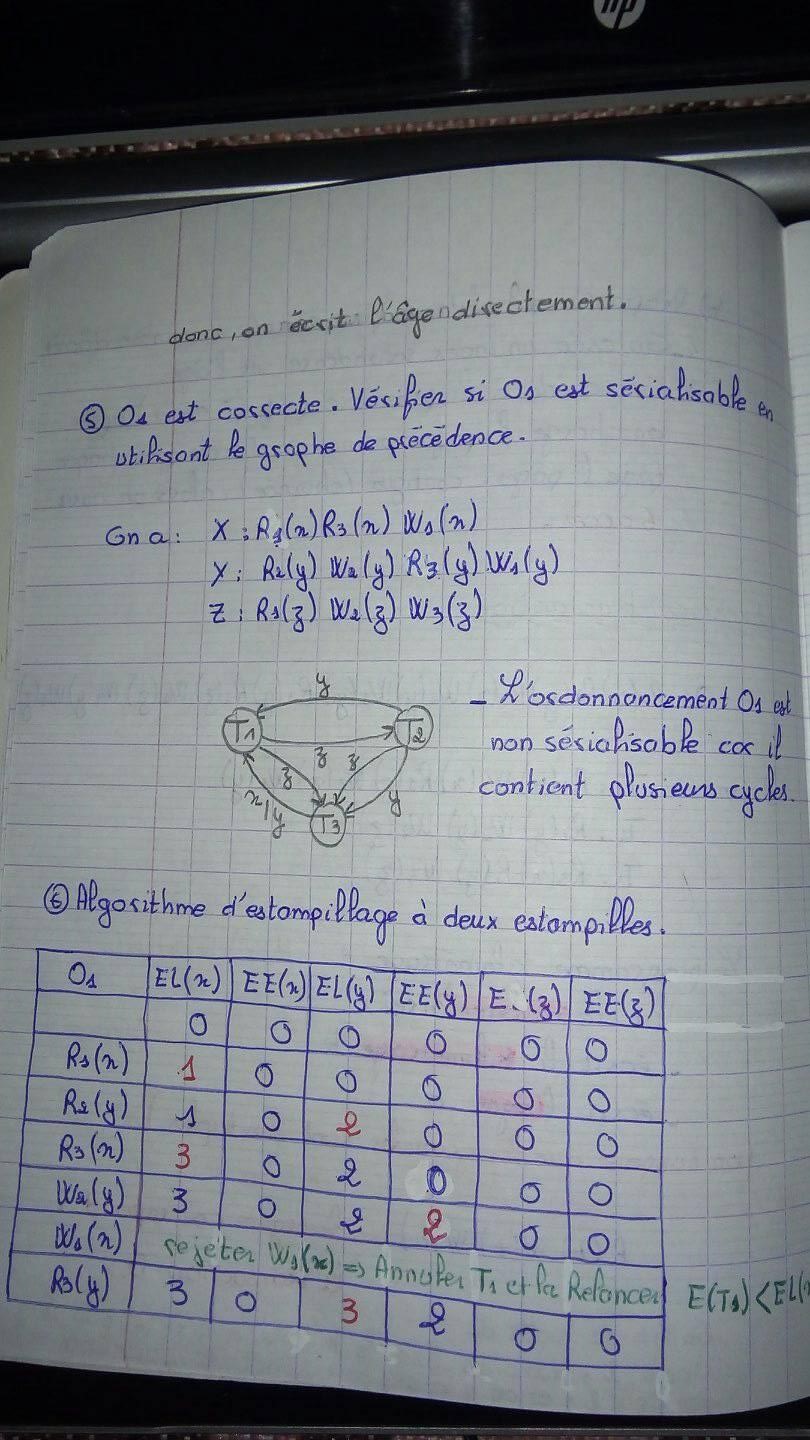 hp
donc, on écrit l'âge directement.
⑤ O1 est correcte. Vérifier si O1 est sérialisable en
utilisant le graphe de précédence.
On a : X : R1(x) R3(x) W1(x)
Y : R2(y) W2(y) R3(y) W1(y)
Z : R1(z) W2(z) W3(z)
y
T1 T2
z z z
x/y y
T3
- L'ordonnancement O1 est
non sérialisable car il
contient plusieurs cycles.
⑥ Algorithme d'estampillage à deux estampilles.
O1 EL(x) EE(x) EL(y) EE(y) E (z) EE(z)
0 0 0 0 0 0
R1(x) 1 0 0 0 0 0
R2(y) 1 0 2 0 0 0
R3(x) 3 0 2 0 0 0
W2(y) 3 0 2 2 0 0
W1(x) rejeter W1(x) => Annuler T1 et la Relancer E(T1) < EL(
R3(y) 3 0 3 2 0 0